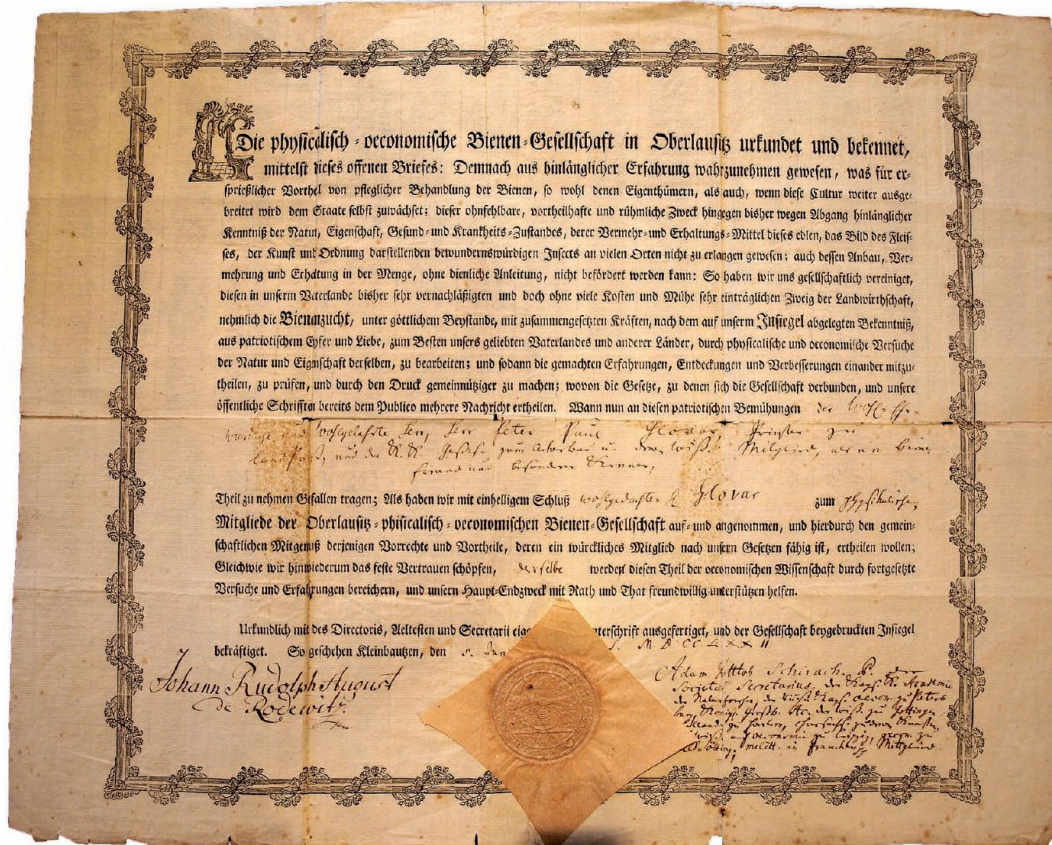 Die physicalisch-oeconomische Bienen-Gesellschaft in Oberlausitz urkundet und bekennet,
mittelst dieses offenen Briefes: Demnach aus hinlänglicher Erfahrung wahrzunehmen gewesen, was für er-
sprießlicher Vorthel von pfleglicher Behandlung der Bienen, so wohl denen Eigenthümern, als auch, wenn diese Cultur weiter ausge-
breitet wird dem Staate selbst zuwächset; dieser ohnfehlbare, vortheilhafte und rühmliche Zweck hingegen bisher wegen Abgang hinlänglicher
Kenntniß der Natur, Eigenschaft, Gesund- und Krankheits-Zustandes, derer Vermehr- und Erhaltungs-Mittel dieses edlen, das Bild des Fleis-
ses, der Kunst und Ordnung darstellenden bewundernswürdigen Insects an vielen Orten nicht zu erlangen gewesen; auch dessen Anbau, Ver-
mehrung und Erhaltung in der Menge, ohne dienliche Anleitung, nicht befördert werden kann: So haben wir uns gesellschaftlich vereiniget,
diesen in unserm Vaterlande bisher sehr vernachläßigten und doch ohne viele Kosten und Mühe sehr einträglichen Zweig der Landwirthschaft,
nehmlich die Bienenzucht, unter göttlichem Beystande, mit zusammengesetzten Kräften, nach dem auf unserm Insiegel abgelegten Bekenntniß,
aus patriotischem Eyfer und Liebe, zum Besten unsers geliebten Vaterlandes und anderer Länder, durch physicalische und oeconomische Versuche
der Natur und Eigenschaft derselben, zu bearbeiten; und sodann die gemachten Erfahrungen, Entdeckungen und Verbesserungen einander mitzu-
theilen, zu prüfen, und durch den Druck gemeinnütziger zu machen; wovon die Gesetze, zu denen sich die Gesellschaft verbunden, und unsere
öffentliche Schriften bereits dem Publico mehrere Nachricht ertheilen. Wann nun an diesen patriotischen Bemühungen der Wohl-Ehr-
würdige und Wohlgelahrte Herr, Herr Peter Paul Glovar Priester zu
Landspreiß, und der K. K. Gesells. zum Ackerbau u. Mitglied, als ein Bienen
freund und besondrer Kenner,
Theil zu nehmen Gefallen tragen; Als haben wir mit einhelligem Schluß wohlgedachten H. Glovar zum physikalischen
Mitgliede der Oberlausitz-phisicalisch-oeconomischen Bienen-Gesellschaft auf- und angenommen, und hierdurch den gemein-
schaftlichen Mitgenuß derjenigen Vorrechte und Vortheile, deren ein würckliches Mitglied nach unsern Gesetzen fähig ist, ertheilen wollen;
Gleichwie wir hinwiederum das feste Vertrauen schöpfen, derselbe werden diesen Theil der oeconomischen Wissenschaft durch fortgesetzte
Versuche und Erfahrungen bereichern, und unsern Haupt-Endzweck mit Rath und That freundwillig unterstützen helfen.
Urkundlich mit des Directoris, Aeltesten und Secretarii eig terschrift ausgefertiget, und der Gesellschaft beygedruckten Insiegel
bekräftiget. So geschehen Kleinbautzen, den MDCCLXXII
Johann Rudolph August
de Rodewitz
Adam Gottlob Schirach, P.
Societ. Secretarius, der Kays. Akademie
der Naturforscher, der Russ. Kays. oecon. zu Petersb.
zu Göttingen
zu Leipzig,
in Mitglied